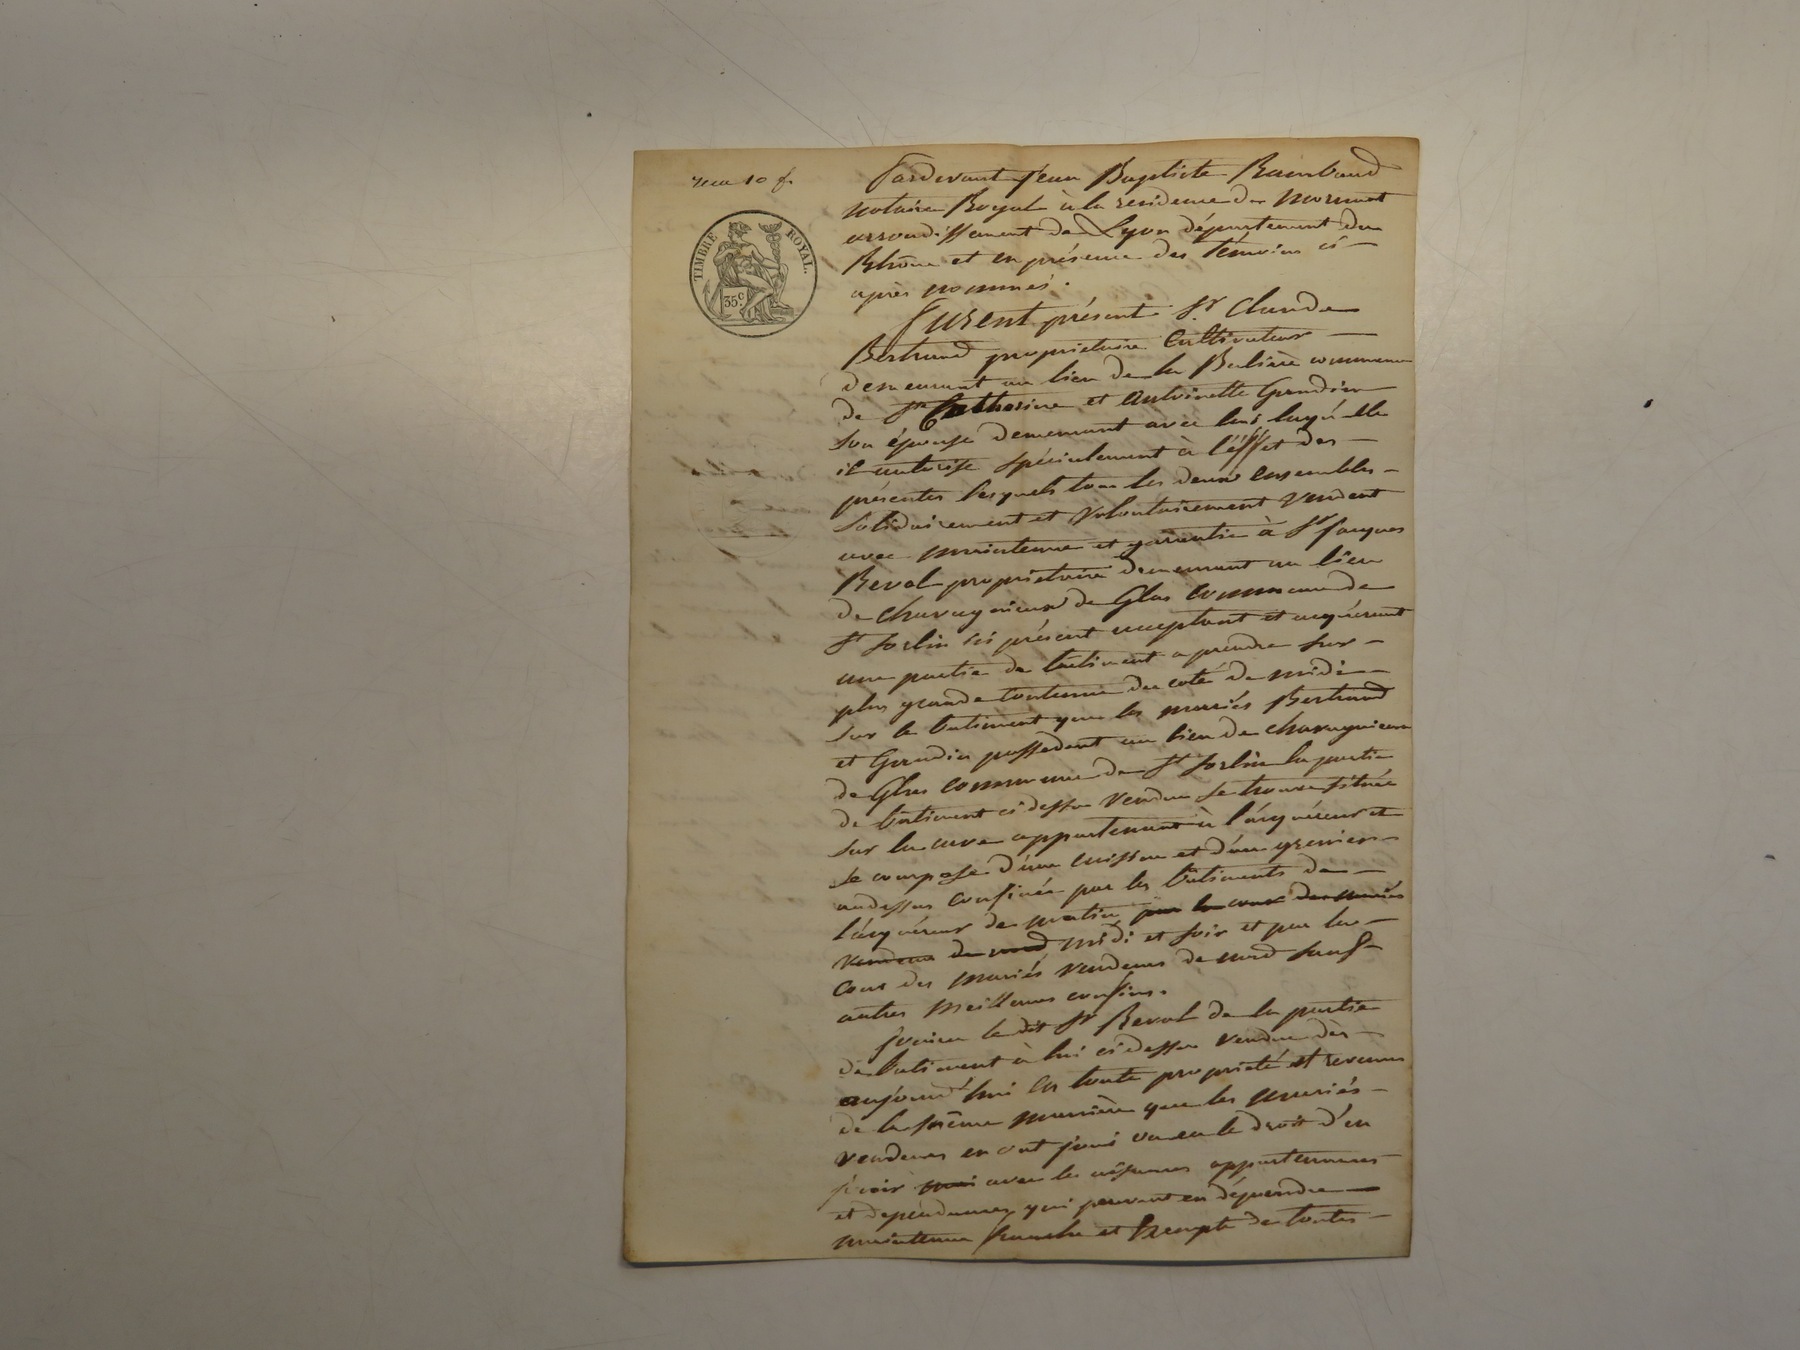 reçu 10 f.
TIMBRE ROYAL.
35c.
Pardevant Jean Baptiste Raimbaud
notaire Royal à la residence de Mornant
arrondissement de Lyon département du
Rhône et en présence des témoins ci-
après nommés.
Furent présent Sr. Claude
Bertrand propriétaire Cultivateur
demeurant au lieu de la commune
de Ste Catherine et Antoinette Grandier
son épouse demeurant avec lui laquelle
il autorise spécialement à l'éffet des
présentes lesquels tous les deux ensembles
solidairement et volontairement vendent
avec maintenue et garantie à Sr Jacques
Reval propriétaire demeurant au lieu
de Charavagnieux de Glas commune de
St Sorlin ici présent acceptant et acquérant
une partie de bâtiment a prendre sur
plus grande contenue du coté de midi
sur le batiment que les mariés Bertrand
et Grandier possedent au lieu de
de Glas commune de St Sorlin la partie
de bâtiment ci dessus vendue se trouve située
sur la cave appartenant à l'acquéreur et
se compose d'une cuisine et d'un grenier
audessus confinée par les bâtiments de
l'acquéreur de matin par la cour des mariés
vendeurs de nord midi et soir et par la
cour des mariés vendeurs de nord sauf
autres meilleurs confins.
Jouira le dit Sr Reval de la partie
de batiment à lui ci dessus vendue dès
aujourd'hui en toute propriété et revenus
de la même manière que les mariés
vendeurs en ont joui ou eu le droit d'en
jouir avec les aisances appartenances
et dépendances qui peuvent en dépendre
maintenue franche et Exempte de toutes